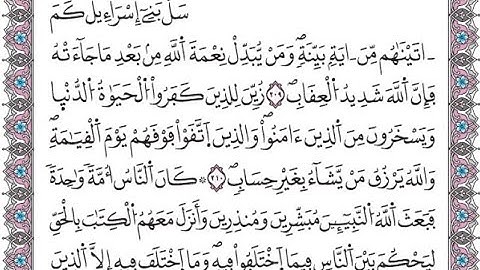 سَلْ بَنِےٓ إِسْرَآءِيلَ كَمَ
ـ اتَيْنَٰهُم مِّنَ ـ ايَةِۢ بَيِّنَةٖۖ وَمَنْ يُّبَدِّلْ نِعْمَةَ اَ۬للَّهِ مِنۢ بَعْدِ مَا جَآءَتْهُ
فَإِنَّ اَ۬للَّهَ شَدِيدُ اُ۬لْعِقَابِۖ ٢٠٩ زُيِّنَ لِلذِينَ كَفَرُواْ اُ۬لْحَيَوٰةُ اُ۬لدُّنْي۪ا
وَيَسْخَرُونَ مِنَ اَ۬لذِينَ ءَامَنُواْۖ وَالذِينَ اَ۪تَّقَوْاْ فَوْقَهُمْ يَوْمَ اَ۬لْقِيَٰمَةِۖ
وَاللَّهُ يَرْزُقُ مَنْ يَّشَآءُ بِغَيْرِ حِسَابٖۖ ٢١٠ ۞ كَانَ اَ۬لنَّاسُ أُمَّةٗ وَٰحِدَةٗ
فَبَعَثَ اَ۬للَّهُ اُ۬لنَّبِيٓـِٕۧنَ مُبَشِّرِينَ وَمُنذِرِينَ وَأَنزَلَ مَعَهُمُ اُ۬لْكِتَٰبَ بِالْحَقِّ
لِيَحْكُمَ بَيْنَ اَ۬لنَّاسِ فِيمَا اَ۪خْتَلَفُواْ فِيهِۖ وَمَا اَ۪خْتَلَفَ فِيهِ إِلَّا اَ۬لذِينَ